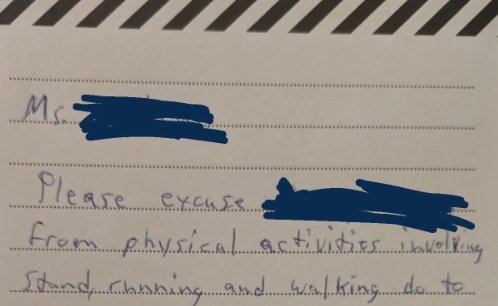 Ms.
Please excuse
from physical activities involving
stand, running and walking do to